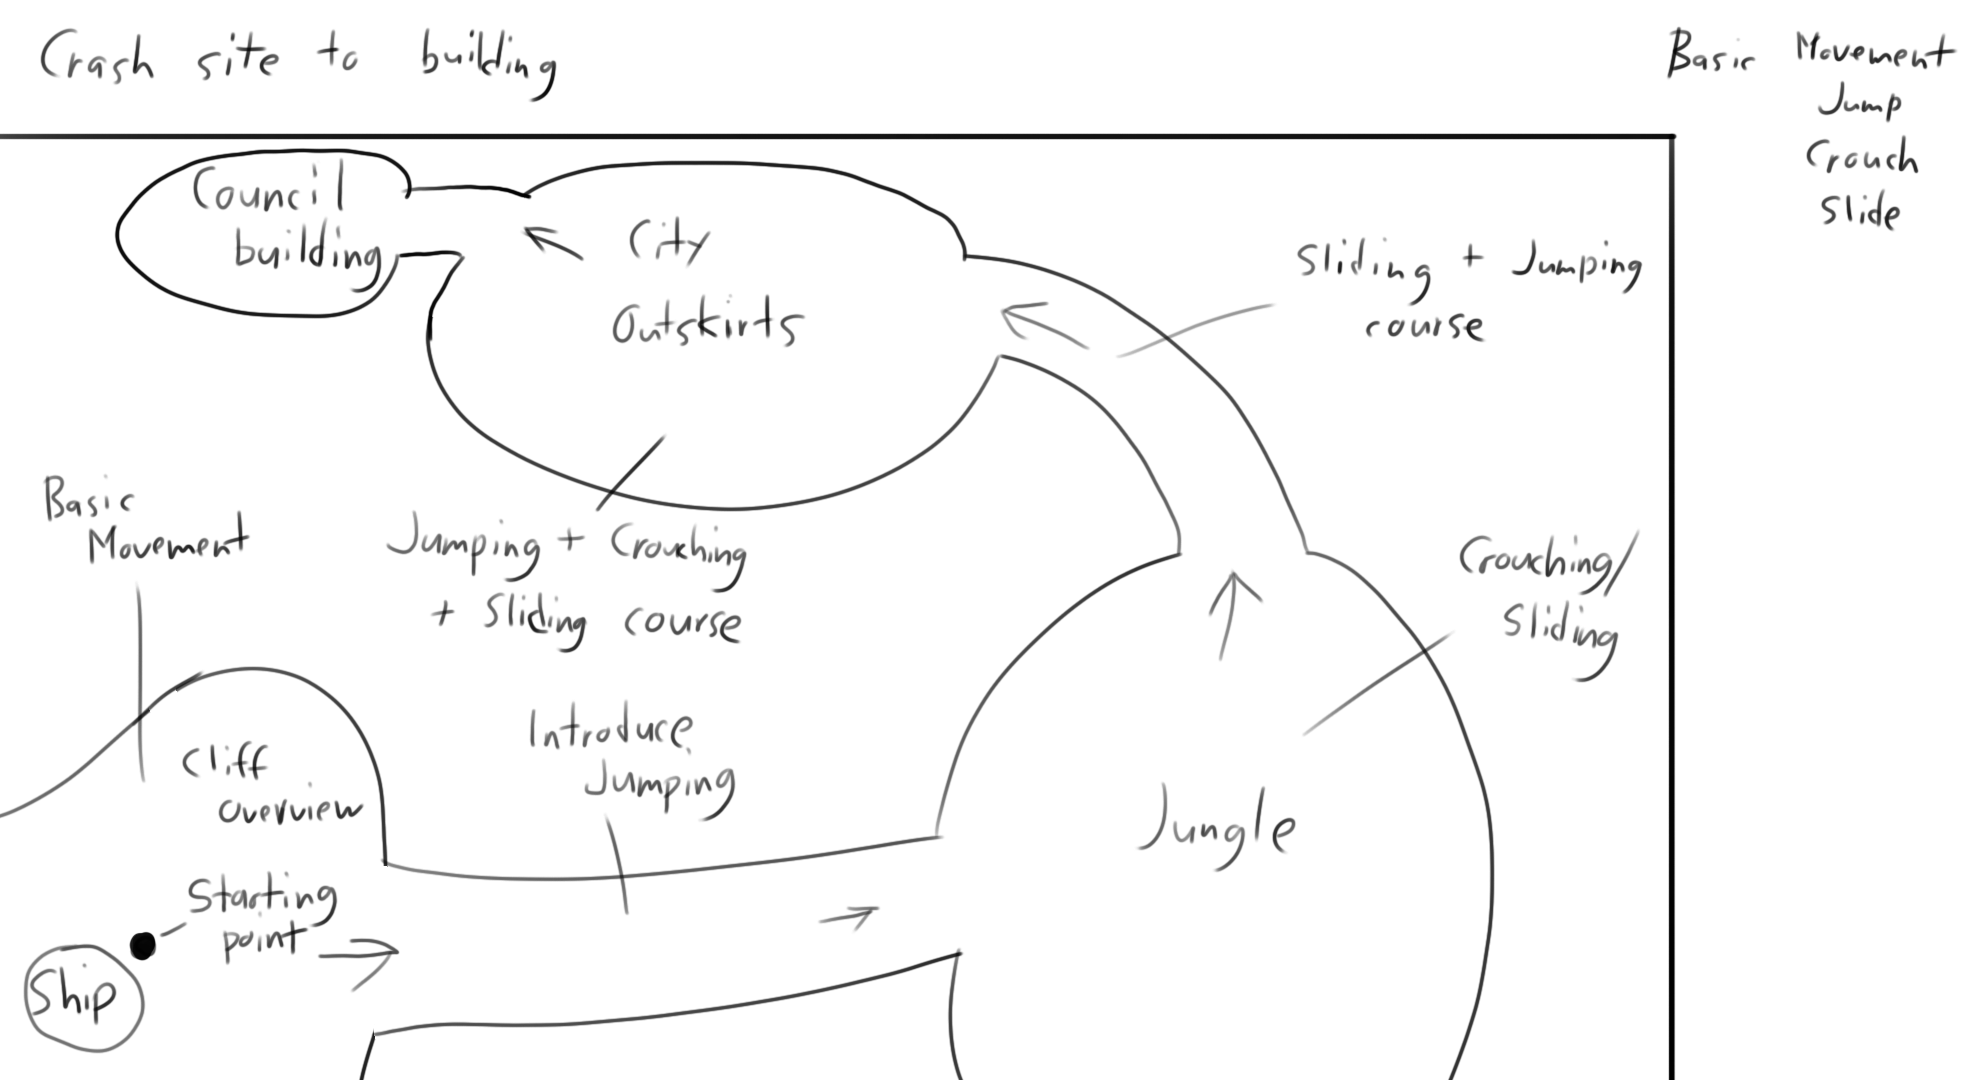 Crash site to building
Basic Movement
Jump
Crouch
Slide
Council
building
City
Outskirts
Sliding + Jumping
course
Basic
Movement
Jumping + Crouching
+ Sliding course
Crouching/
Sliding
Introduce
Jumping
Cliff
Overview
Jungle
Starting
point
Ship